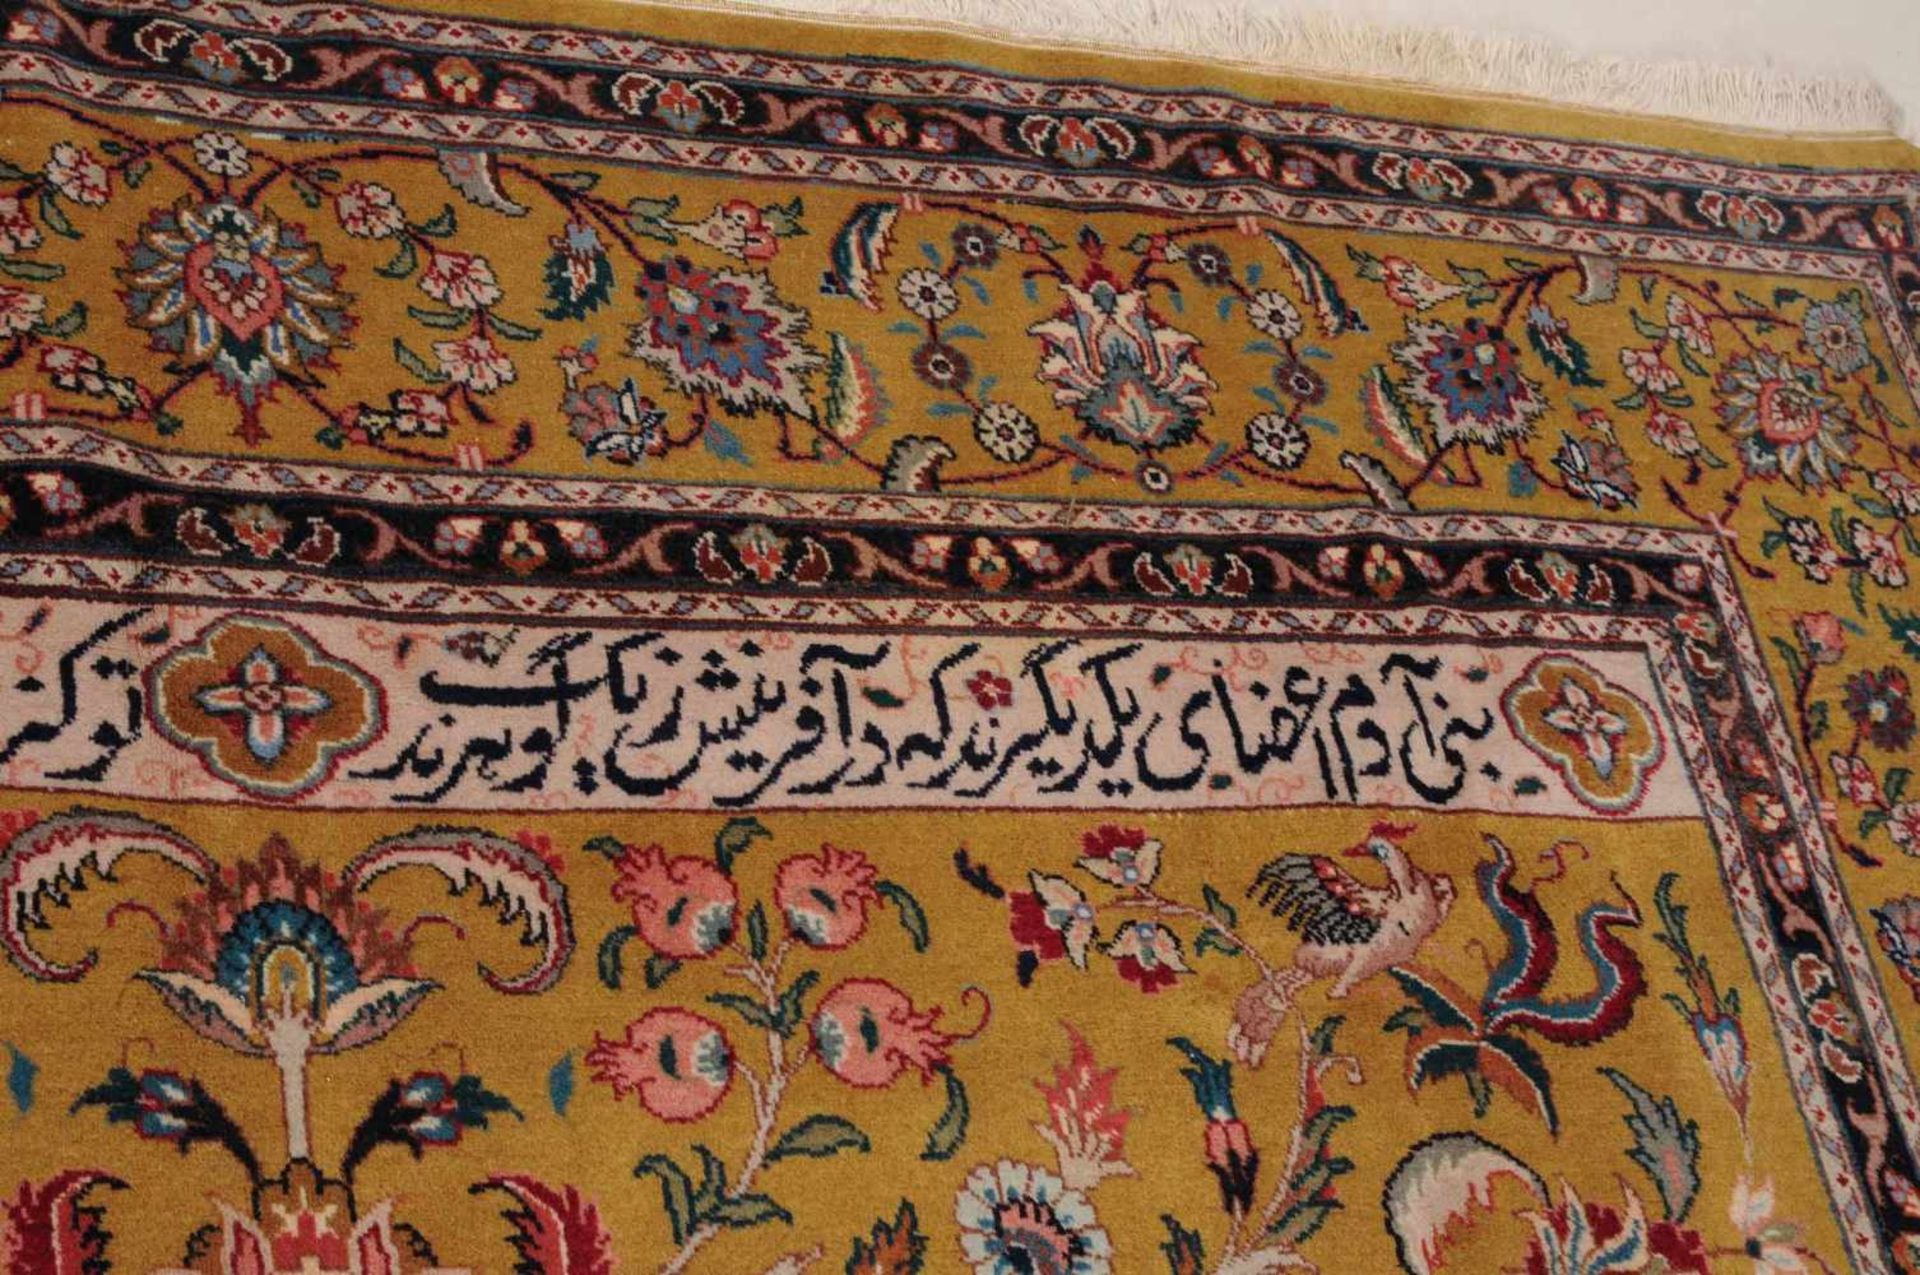 بنی آدم اعضای یکدیگرند که در آفرینش ز یک گوهرند